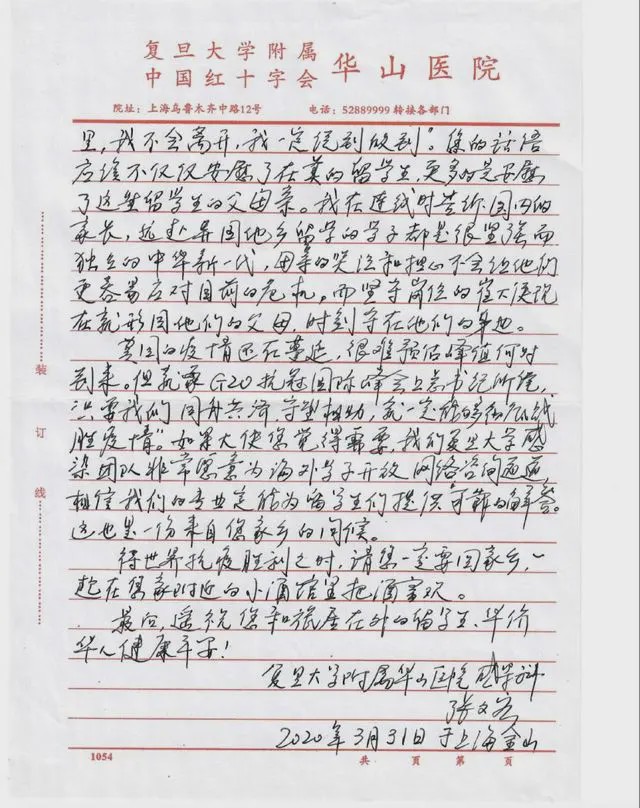 复旦大学附属
中国红十字会 华山医院
院址：上海乌鲁木齐中路12号 电话：52889999 转接各部门
里，我不会离开，我一定说到做到”。您的话语
应该不仅仅安慰了在英的留学生，更多的是安慰
了这些留学生的父母亲。我在连线时告诉国内的
家长，远赴异国他乡留学的学子都是很坚强而
独立的中华新一代，母亲的哭泣和担心不会让他们
更容易应对目前的危机。而坚守岗位的崔大使现
在就形同他们的父母，时刻守在他们的身边。
英国的疫情还在蔓延，很难预估峰值何时
到来。但就像G20抗冠国际峰会上总书记所说，
只要我们“同舟共济、守望相助，就一定能够彻底战
胜疫情”。如果大使您觉得需要，我们复旦大学感
染团队非常愿意为海外学子开放网络咨询通道，
相信我们的专业定能为留学生们提供可靠的解答。
这也是一份来自您家乡的问候。
待世界抗疫胜利之时，请您一定要回家乡，一
起在您家附近的小酒馆里把酒言欢。
最后，遥祝您和旅居在外的留学生、华侨
华人健康平安！
复旦大学附属华山医院 感染科
张文宏
2020年3月31日于上海金山
装
订
线
1054 共 页 第 页